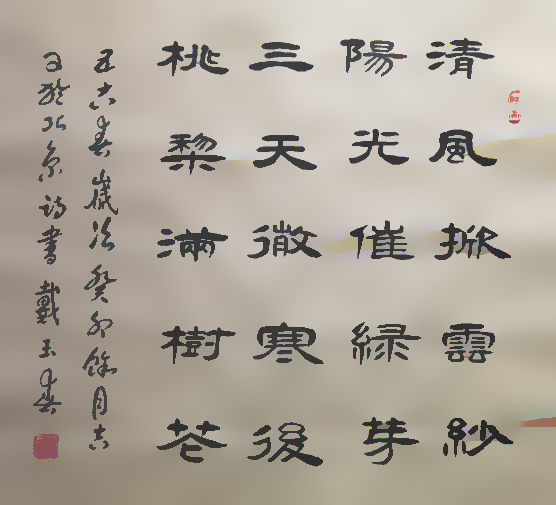 清風掀雲紗
陽光催緑芽
三天徹寒後
桃棃滿樹花
五六春歲次癸卯餘月吉
日於北京詩書戴玉春